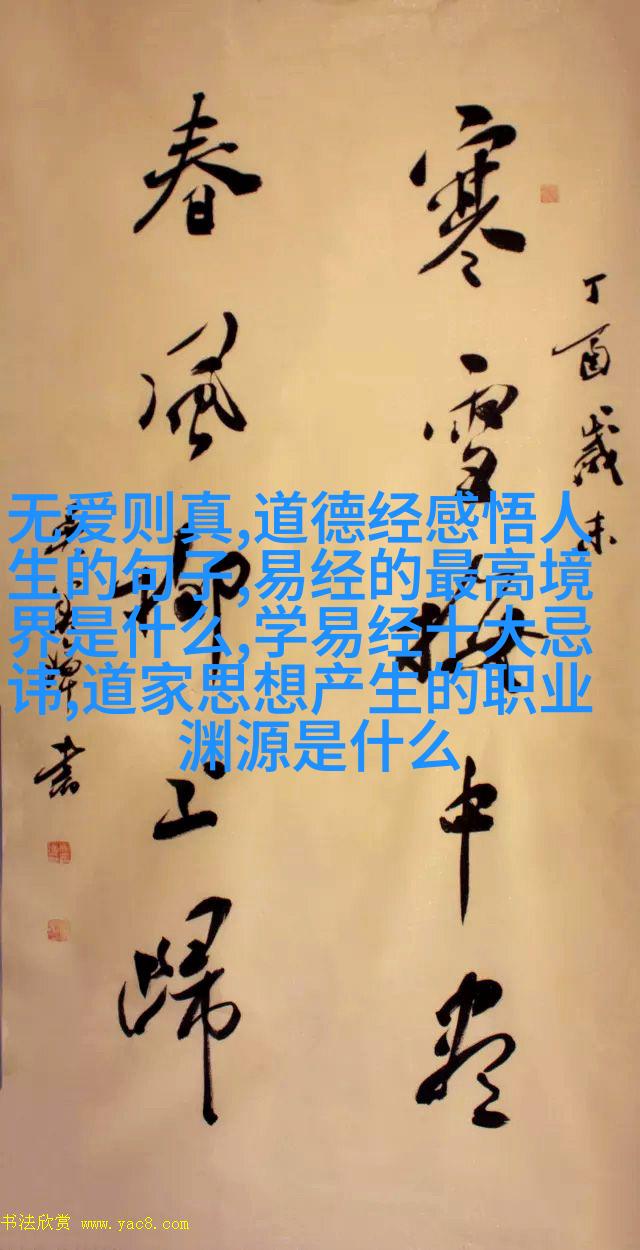 丁酉岁末
寒雪梅中尽
春风柳上归
书
无爱则真,道德经感悟人
生的句子,易经的最高境
界是什么,学易经十大忌
讳,道家思想产生的职业
渊源是什么
书法欣赏 www.yac8.com